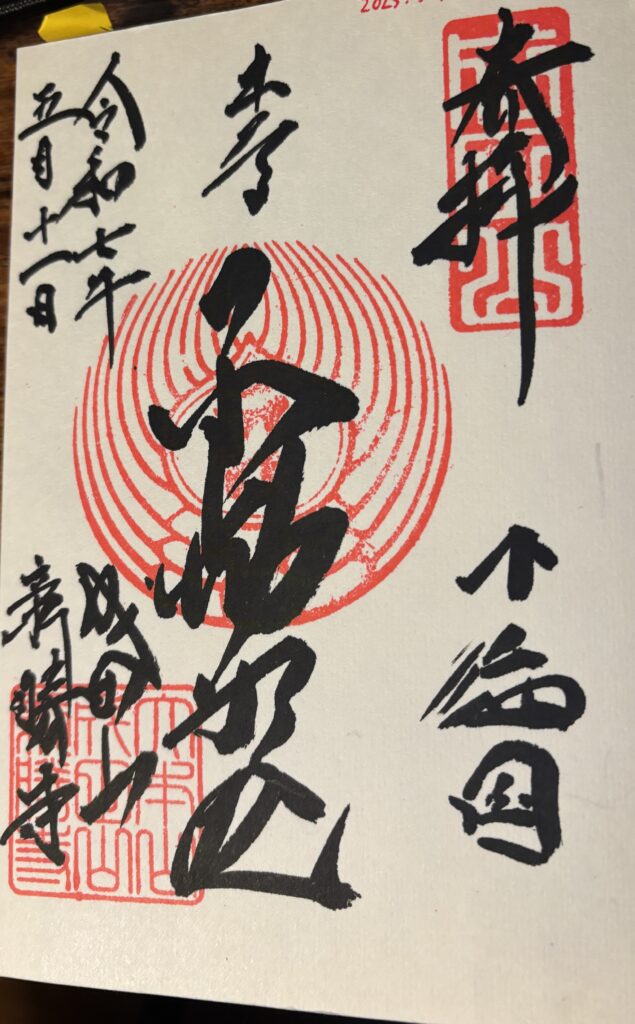 奉拝
下総国
本尊
令和七年
五月十一日
成田山
新勝寺
大本山
成田山
新勝寺